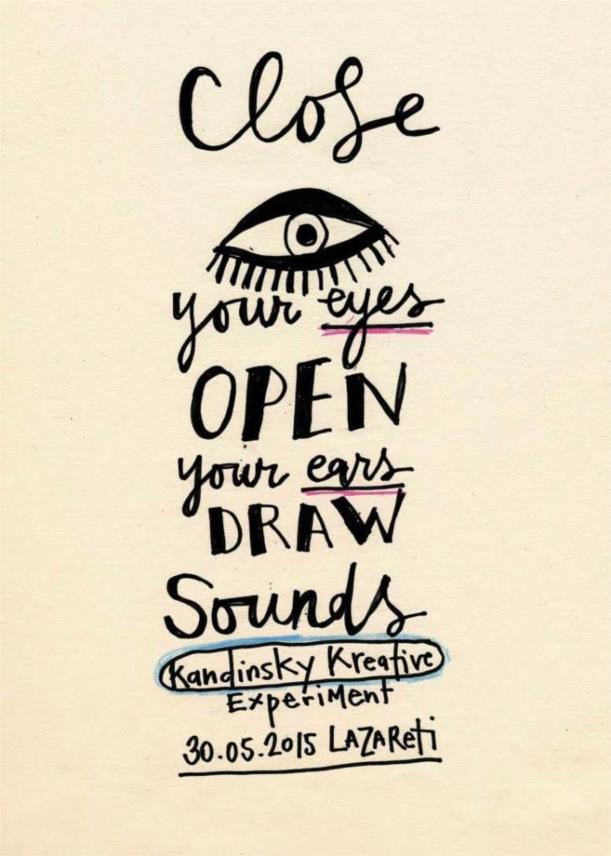 Close
your eyes
OPEN
your ears
DRAW
Sounds
Kandinsky Kreative
Experiment
30.05.2015 LAZAReti